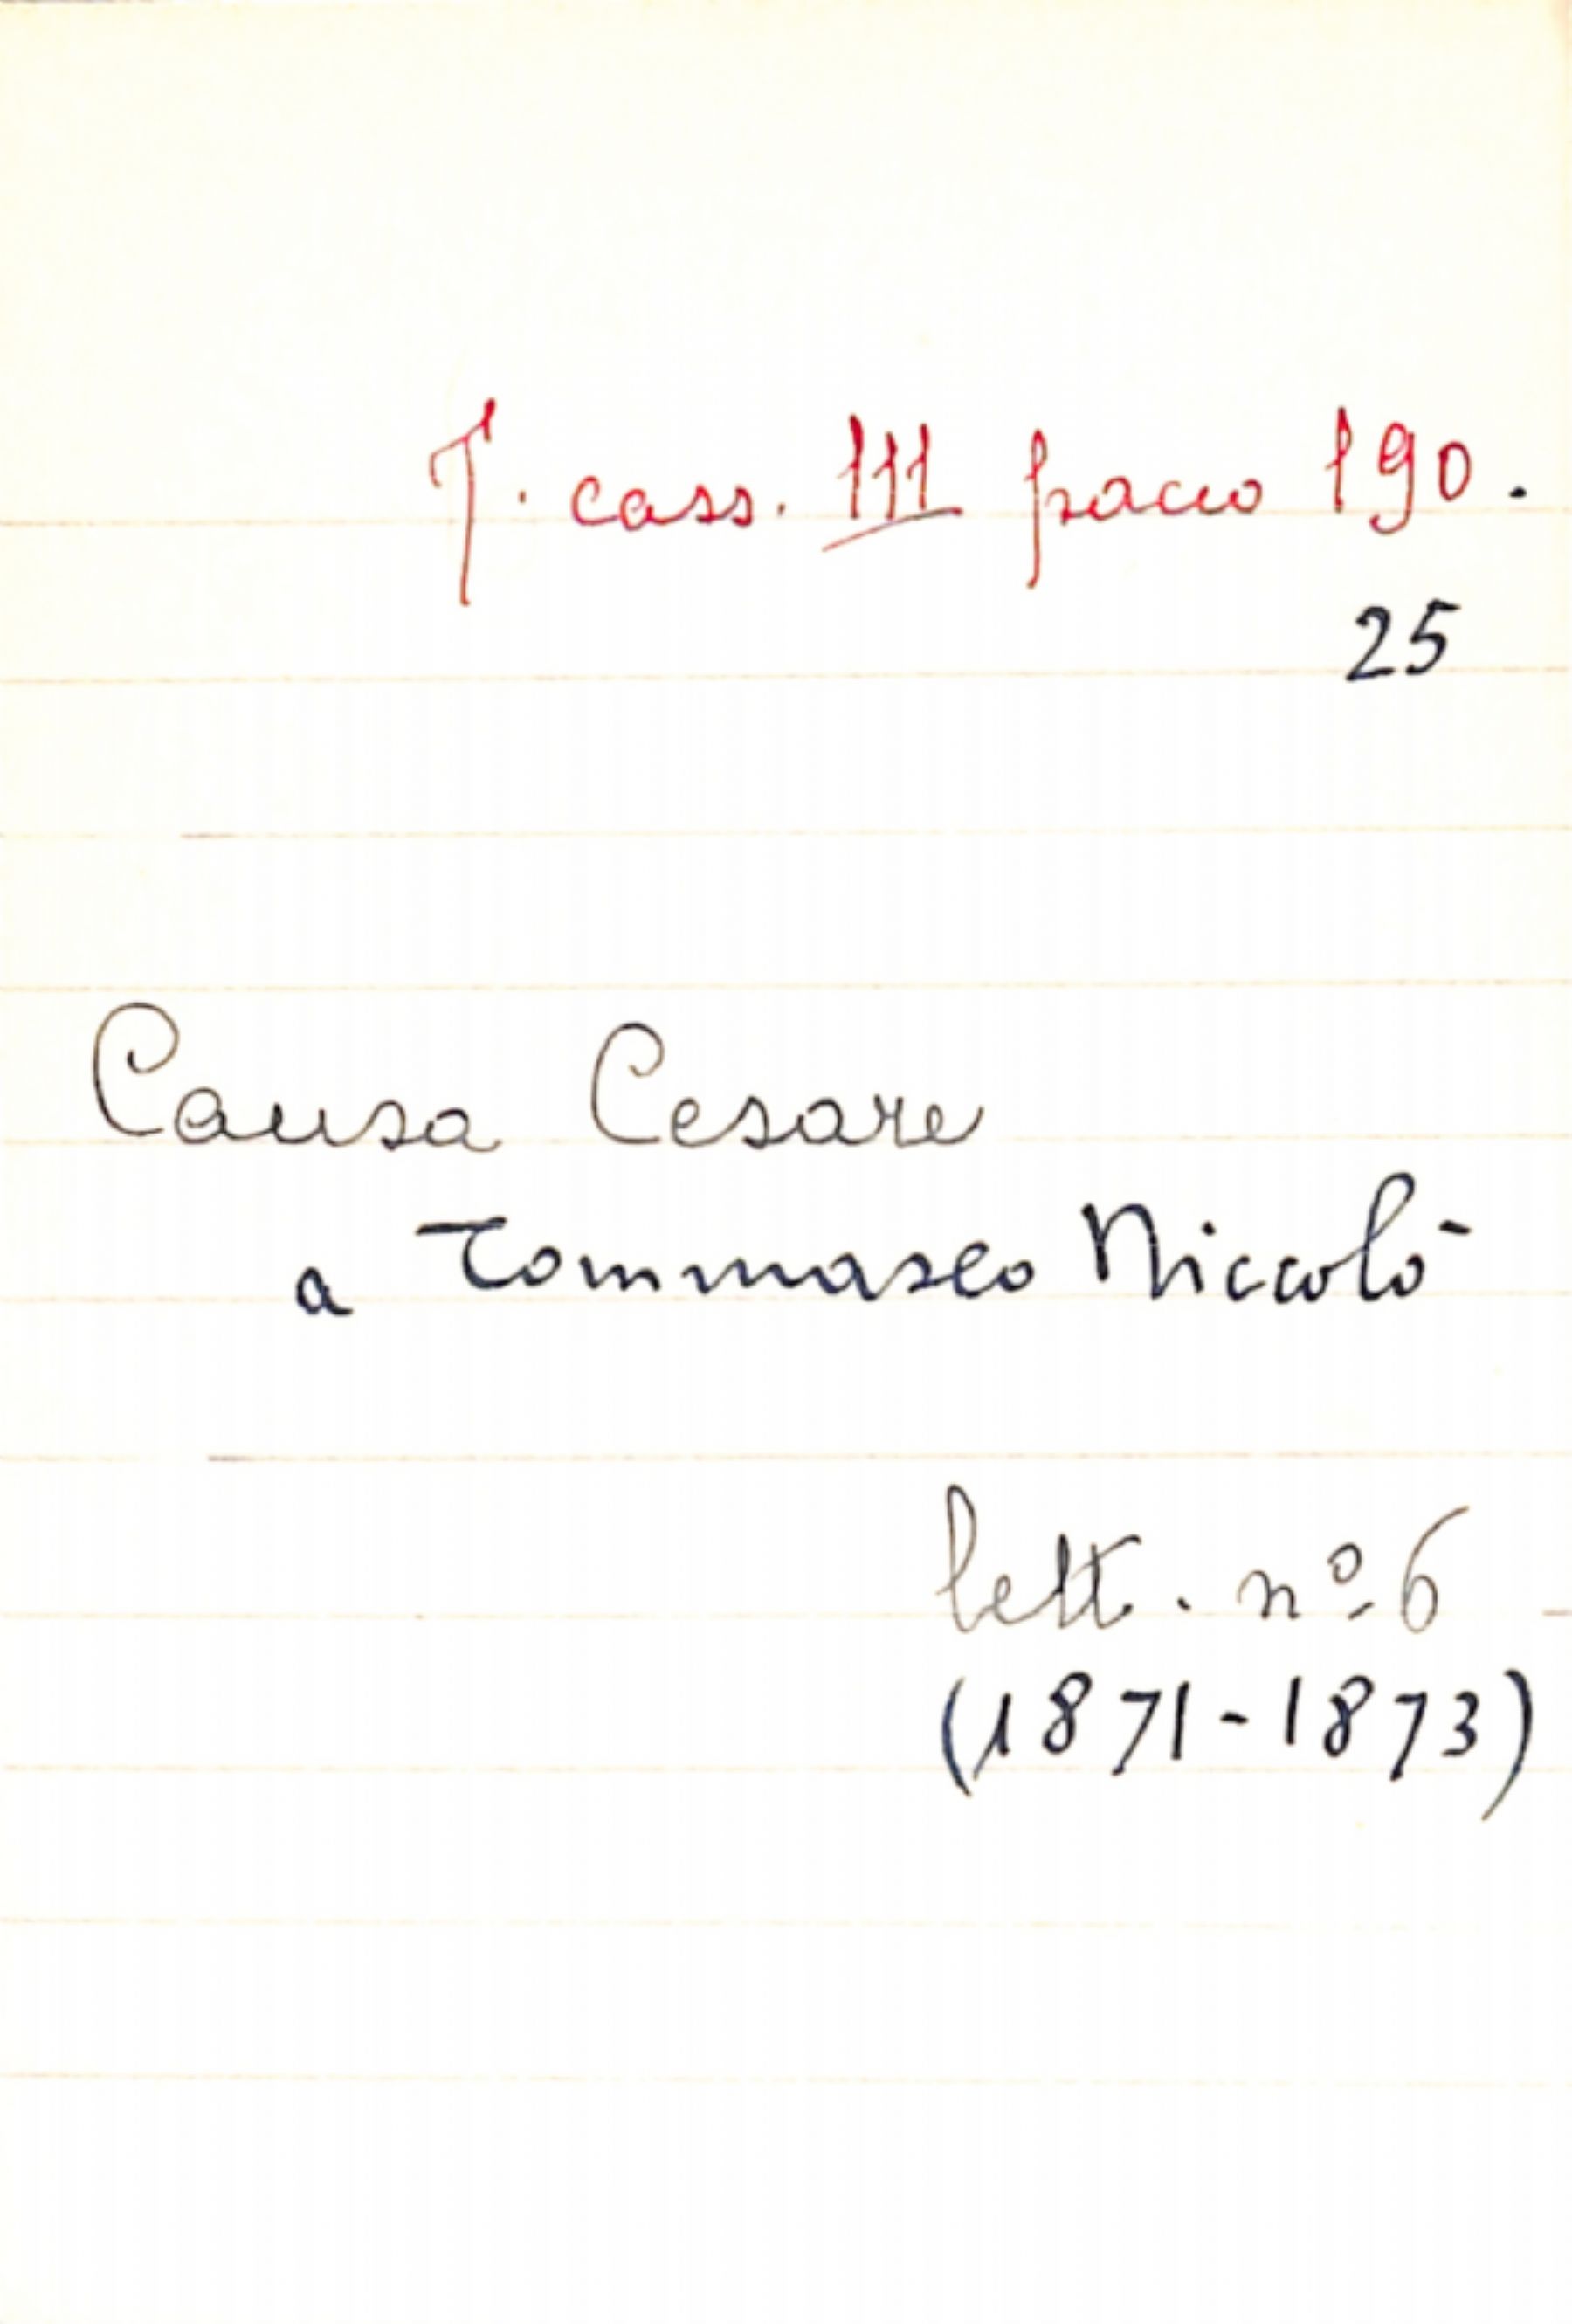 T. cass. III pacco 190.
25
Causa Cesare
a Tommaseo Niccolò
lett. nº 6
(1871-1873)